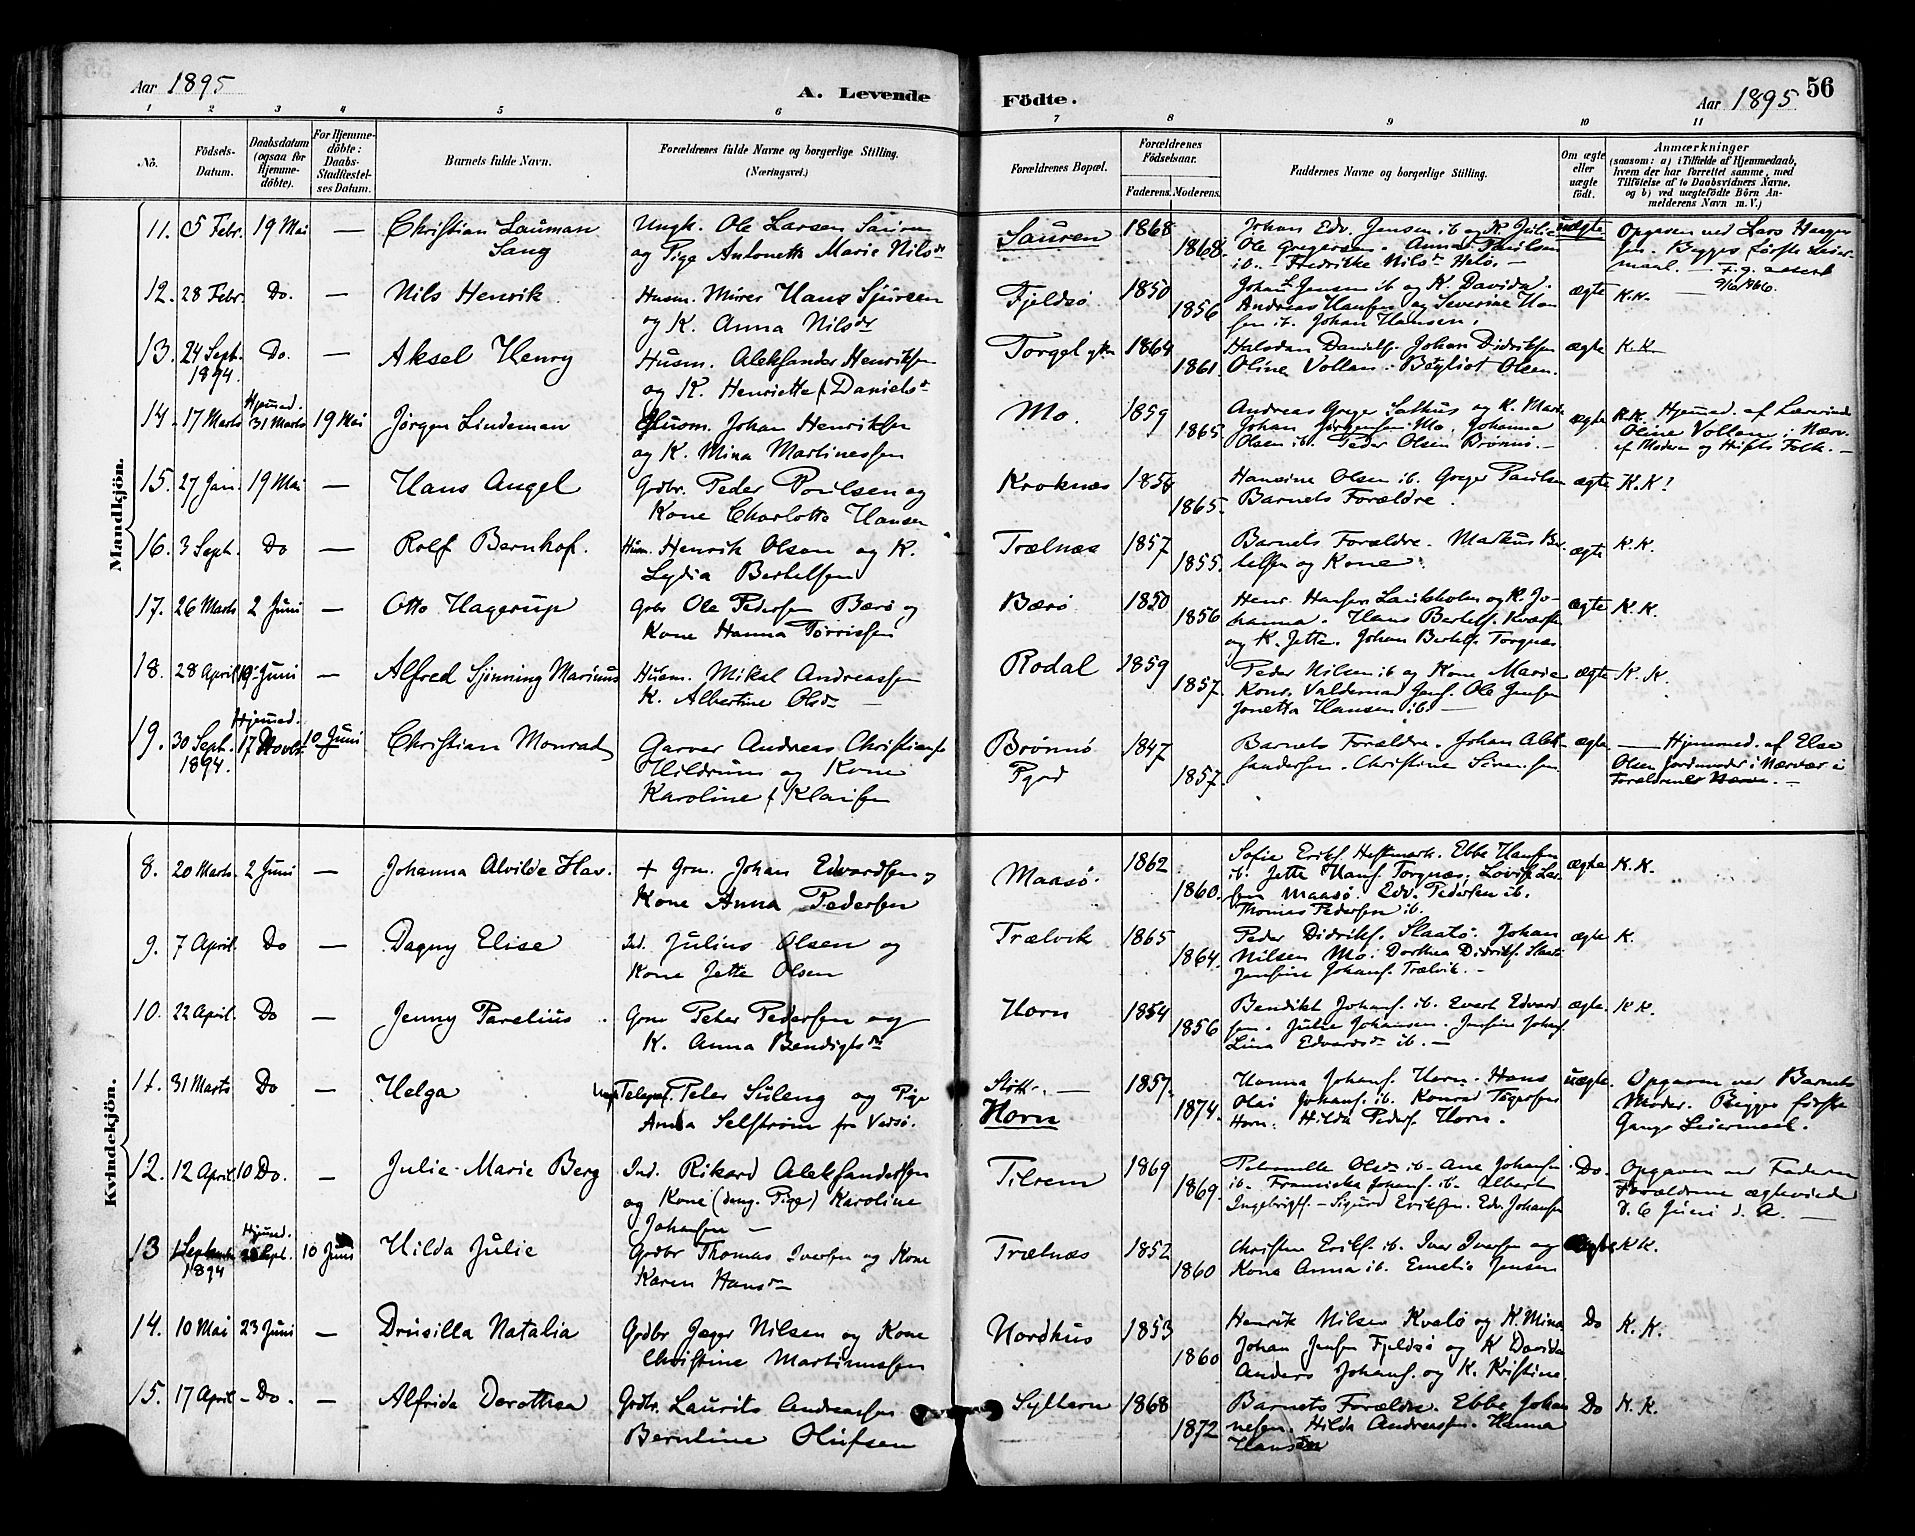 Aar 1895
A. Levende
Födte.
Aar 1895
56
1 2 3 4 5 6 7 8 9 10 11
No.
Födsels-
Datum.
Daabsdatum
(ogsaa for
Hjemme-
döbte).
For Hjemme-
döbte:
Daabs-
Stadfæstel-
ses Datum.
Barnets fulde Navn.
Forældrenes fulde Navne og borgerlige Stilling.
(Næringsvei.)
Forældrenes Bopæl.
Forældrenes
Födselsaar.
Faderens. Moderens.
Faddernes Navne og borgerlige Stilling.
Om ægte
eller
uægte
födt.
Anmærkninger
(saasom: a) i Tilfælde af Hjemmedaab,
hvem der har forrettet samme, med
Tilföielse af to Daabsvidners Navne,
og b) ved uægtefödte Börn An-
melderens Navn m. V.)
Mandkjön.
11. 5 Febr. 19 Mai — Christian Lauman
Sang
Ungk. Ole Larsen Sauren
og Pige Antonette Marie Nilsdr
Sauren 1868 1868.
Johan Edv. Jensen ib og K. Julie
Ole Gregersen. Anna Paulsen
ib. Fredrikke Nilsdr Helø. —
uægte
Opgaven ved Lars
Begges første Leier-
maal. —
12. 28 Febr. Do. — Nils Henrik
Husm. Murer Hans Sjursen
og K. Anna Nilsdr
Fjeldsø 1850 1856
Johan Jensen ib og K. Davida.
Andreas Hansen og Severine Han-
sen ib. Johan Hansen.
ægte K.K. —
13. 24 Sept. 1894. Do. — Aksel Henry
Husm. Aleksander Henriksen
og K. Henriette f. Danielsdr
1864 1861.
Halvdan Daniels. Johan Didriksen
Oline Vollan. Olsen.
ægte K.K
14. 17 Marts Hjemmed. 31 Marts 19 Mai Jørgen Lindeman
Husm. Johan Henriksen
og K. Mina Martinessen
Mo. 1859 1865
Andreas Greger Salhus og K. Marie
Johan Jørgensen Mo, Johanna
Olsen ib. Peder Olsen Brønnø. —
ægte
K.K. Hjemmed. af Lærerinde
Oline Vollan i Nærv.
af Moderen og Husets Folk. —
15. 27 Jan. 19 Mai — Hans Angel
Grdbr. Peder Poulsen og
Kone Charlotte Hansen
Kroknæs 1858 1865.
Hansine Olsen ib. Greger Paulsen
Barnets Forældre.
ægte K.K!
16. 3 Sept. Do — Rolf Bernhof.
Husm. Henrik Olsen og K.
Lydia Bertelsen
Trælnæs 1857 1855.
Barnets Forældre. Markus Ber-
telsen og Kone.
ægte K.K.
17. 26 Marts 2 Juni — Otto Hagerup
Grbr Ole Pedersen Bærø og
Kone Hanna Tørrissen
Bærø 1850 1856
Henr. Hansen Laukholm og K. Jo-
hanna. Hans Bertels.
og K. Jette. Johan Bertels. Torgnæs
ægte K.K.
18. 28 April Juni — Alfred Sjønning Marinus
Husm. Mikal Andreassen
K. Albertine Olsdr —
Rodal 1859 1857.
Peder Nilsen ib og Kone Marie
Konr. Valdemar Jens. Ole Jensen
Jonetta Hansen ib. —
ægte K.K.
19. 30 Sept. 1894. Hjemmed. 17 Novbr. 10 Juni Christian Monrad
Garver Andreas Christians.
Hildrum og Kone
Karoline f. Klausen
Brønnø
Pgrd 1847 1857.
Barnets Forældre. Johan Alek-
sandersen. Christine Sørensen
ægte
— Hjemmed. af Else
Olsen Jordmoder i Nærvær af
Forældrenes Navn. —
Kvindekjön.
8. 20 Marts. 2 Juni — Johanna Alvilde Hav.
+ Grm. Johan Edvardsen og
Kone Anna Pedersen
Maasø. 1862 1860.
Sofie Eriks. Hestmark. Ebbe Hansen
ib. Jette Hans. Torgnæs. Lovise Lar-
sen Maasø. Edv. Pedersen ib.
Thomas Pedersen ib.
ægte K.K.
9. 7 April. Do — Dagny Elise
Ind. Julius Olsen og
Kone Jette Olsen
Trælvik 1865 1864.
Peder Didriks. Slaatø. Johan
Nilsen Mo. Dorthea Didriks. Slaatø
Jensine Johans. Trælvik. —
ægte K.
10. 22 April. Do — Jenny Parelius
Grm Peter Pedersen og
K. Anna Bendigtsdr
Horn 1854 1856
Bendikt Johans. ib. Evert Edvard-
sen. Julie Johansen. Jensine Johans.
Lina Edvardsdr ib. —
ægte. K K.
11. 31 Marts Do — Helga
Ungk. Telegraf. Peter Suleng og Pige
Anna Selstrøm fra Vadsø.
Støtt. —
Horn 1857. 1874.
Hanna Johans. Horn. Hans
Olai Johans. ib. Konrad
Horn. Hilda Peders. Horn.
uægte.
Opgaven ved Barnets
Moder. Begges første
Gangs Leiermaal.
12. 12 April. 10 Do. — Julie Marie Berg
Ind. Rikard Aleksandersen
og Kone (dengg. Pige) Karoline
Johansen —
Tilrem 1869 1869.
Petronelle Olsdr ib. Ane Johansen
ib. Franciska Johans. ib. Albert
Ingebrigts. — Sigurd Eriksen. Edv. Johansen
Do.
Opgaven ved Faderen
Forældrene ægteviede
d. 6 Juni d. A. —
13 Septembr. 1894 Hjemmed. Sept. 10 Juni Hilda Julie
Grdbr Thomas Iversen og Kone
Karen Hansdr
Trælnæs 1852 1860
Christen Eriks. ib. Iver Iversen og
Kone Anna ib. Emelie Jensen
ægte KK.
14. 10 Mai 23 Juni — Drusilla Natalia
Grdbr Jæger Nilsen og Kone
Christine Martinussen
Nordhus 1853 1860
Henrik Nilsen Kvalø og K. Mina
Johan Jensen Fjeldsø og K Davida
Anders Johans. og K. Kristine.
Do K.K.
15. 17 April — Do. — Alfrida Dorothea
Grdbr. Laurits Andreassen
Berntine Olufsen
Syltern 1868 1872
Barnets Forældre. Ebbe Johan-
nesen. Hilda Andreassen. Hanna
Hansen
Do K.K.